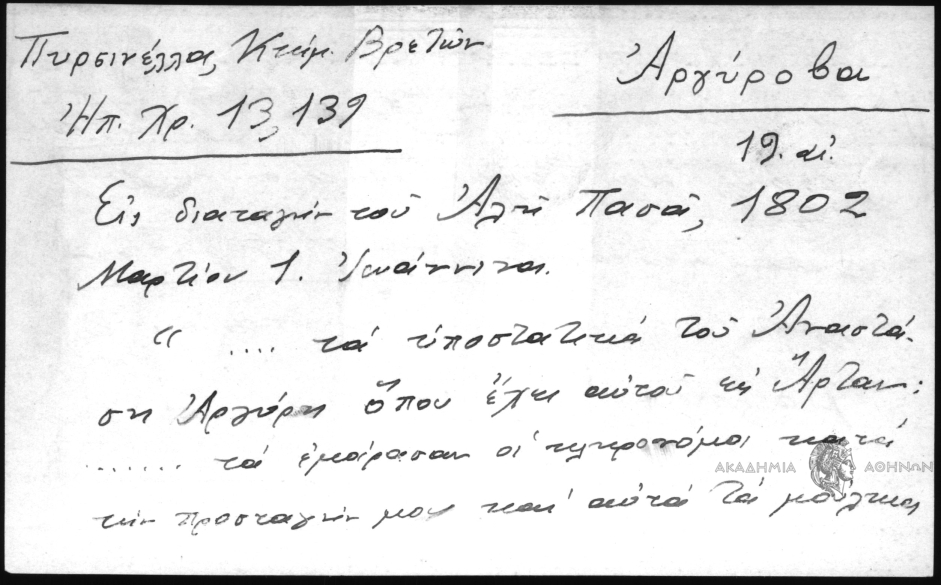 Πυρσινέλλας, Κτήμ. Βρετῶν
Ἠπ. Χρ. 13, 139
Ἀργύροβα
19. αἰ.
Εἰς διαταγήν τοῦ Ἀλῆ Πασᾶ, 1802
Μαρτίου 1. Ἰωάννινα.
“ .... τά ὑποστατικά τοῦ Ἀναστά-
ση Ἀργύρη ὅπου ἔχει αὐτοῦ εἰς Ἄρταν:
....... τά ἐμοίρασαν οἱ κληρονόμοι κατά
τήν προσταγήν μου καί αὐτά τά μούλκια
ΑΚΑΔΗΜΙΑ ΑΘΗΝΩΝ